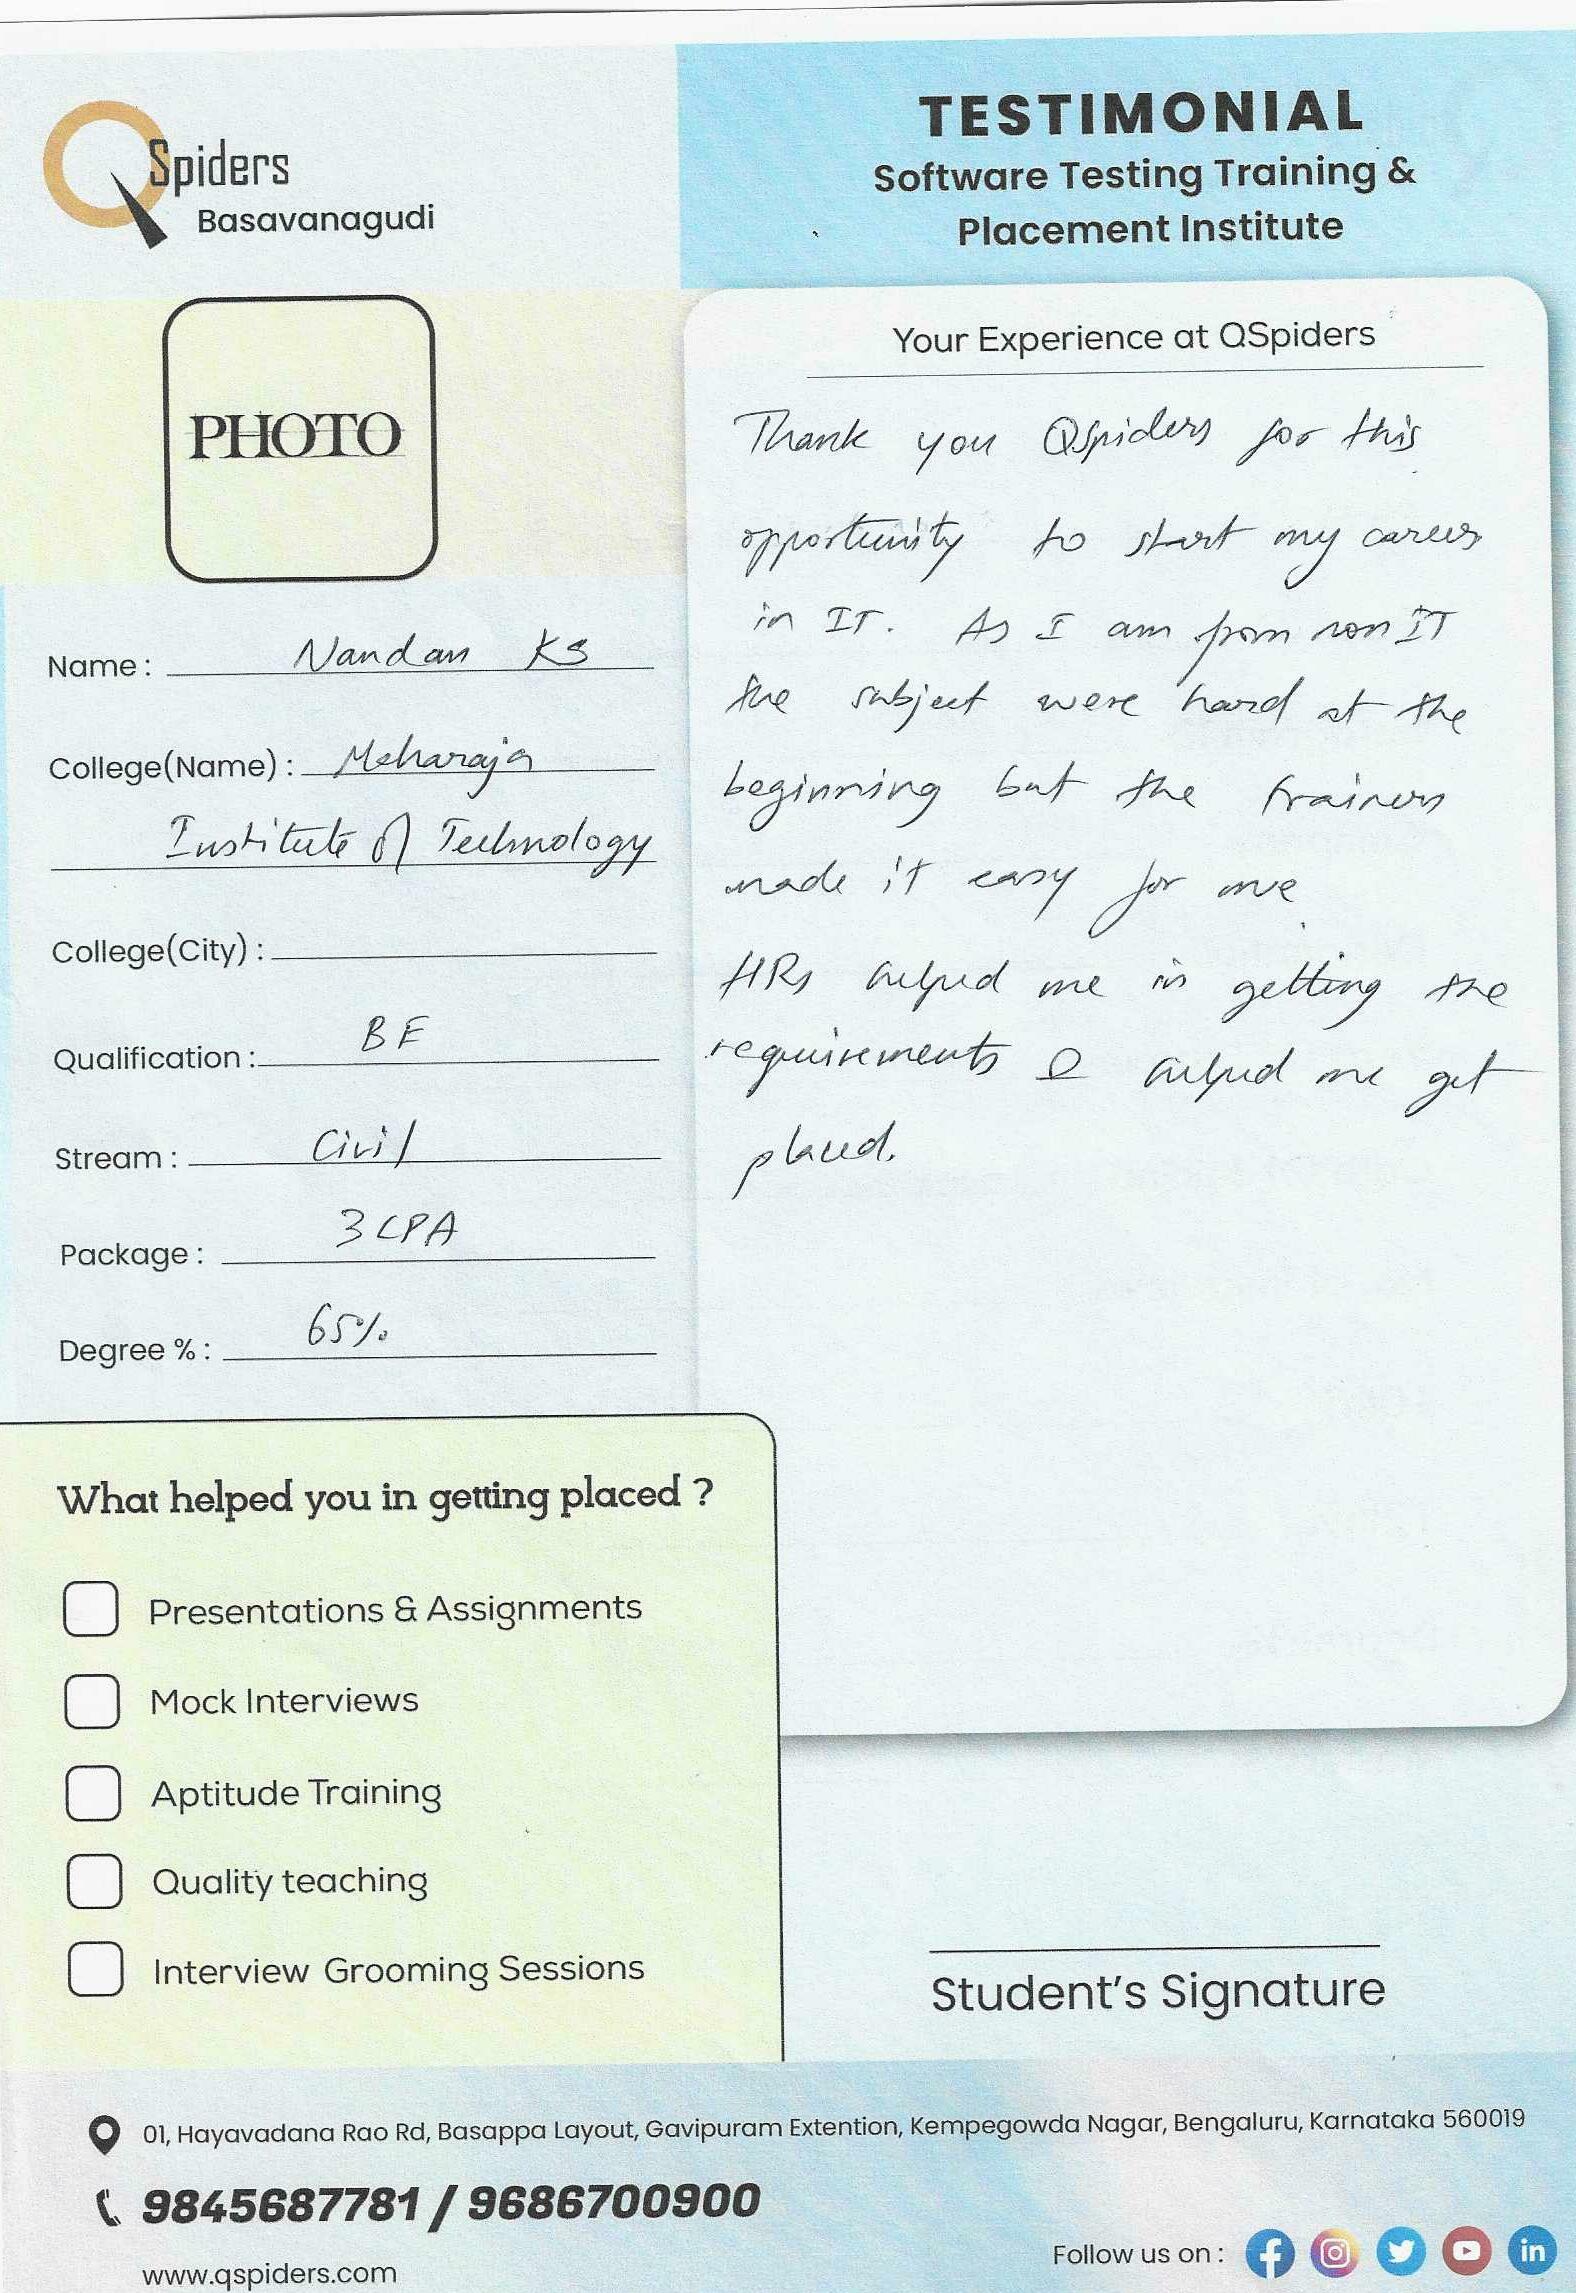 QSpiders
Basavanagudi
TESTIMONIAL
Software Testing Training &
Placement Institute
PHOTO
Name : Nandan KS
College(Name) : Maharaja
Institute of Technology
College(City) :
Qualification : BE
Stream : Civil
Package : 3 LPA
Degree % : 65%
Your Experience at QSpiders
Thank you QSpiders for this
opportunity to start my career
in IT. As I am from non IT
the subject were hard at the
beginning but the trainers
made it easy for me
HRs helped me in getting the
requirements & helped me get
placed.
What helped you in getting placed ?
Presentations & Assignments
Mock Interviews
Aptitude Training
Quality teaching
Interview Grooming Sessions
Student's Signature
01, Hayavadana Rao Rd, Basappa Layout, Gavipuram Extention, Kempegowda Nagar, Bengaluru, Karnataka 560019
9845687781 / 9686700900
www.qspiders.com
Follow us on :